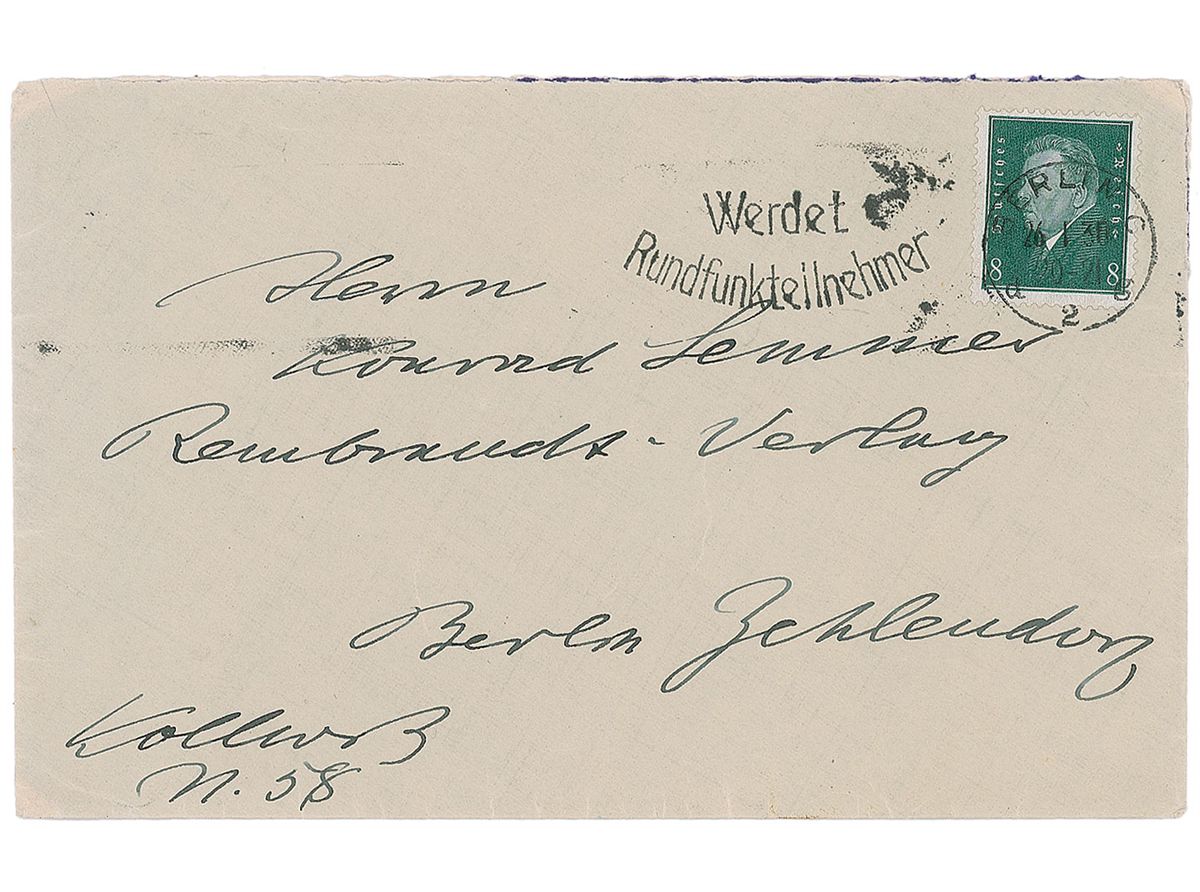 Werdet
Rundfunkteilnehmer
Deutsches Reich
8 8
BERLIN C
2
Herrn
Konrad Lemmer
Rembrandt-Verlag
Berlin Zehlendorf
Kollwitz
N. 58